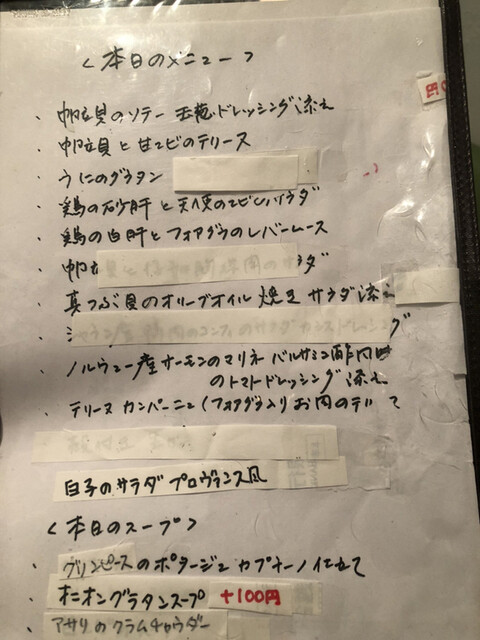 <本日のメニュー>
・帆立貝のソテー 玉葱ドレッシング添え
・帆立貝と甘エビのテリース
・うにのグラタン
・鶏の砂肝と天使のエビのサラダ
・鶏の白肝とフォアグラのレバームース
・帆立 ラダ
・真つぶ貝のオリーブオイル焼き サラダ添え
・シャラン産 鴨肉のコンフィのサラダ カシスドレッシング
・ノルウェー産サーモンのマリネ バルサミコ酢
のトマトドレッシング添え
・テリーヌ カンパーニュ(フォアグラ入りお肉のテリ
白子のサラダ プロヴァンス風
<本日のスープ>
・グリンピースのポタージュ カプチーノ仕立て
・オニオングラタンスープ +100円
・アサリのクラムチャウダー